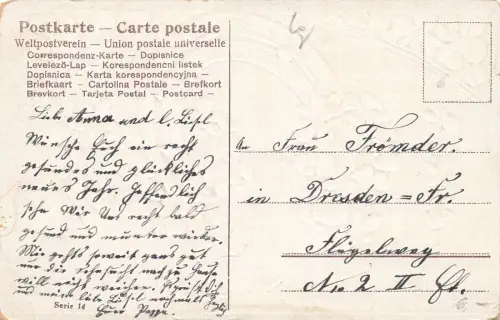 Postkarte — Carte postale
Weltpostverein — Union postale universelle
Correspondenz-Karte — Dopisnice
Levelező-Lap — Korespondencni listek
Dopisnica — Karta korespondencyjna —
Briefkaart — Cartolina Postale — Brefkort
Brevkort — Tarjeta Postal — Postcard —
Liebe Anna und l. Lisel
Wünsche Euch ein recht
gesundes und glückliches
neues Jahr. Hoffendlich
sehn Wir Uns recht bald
gesund und munter wieder.
Mir gehts soweit ganz gut
nur die Sehnsucht nach zu Hause
will nicht weichen.
und meine liebe Lisel nochmals
Euer Pappa.
Serie 14
An Frau Frömder.
in Dresden = Fr.
Flügelweg
No. 2 II Et.
6,–